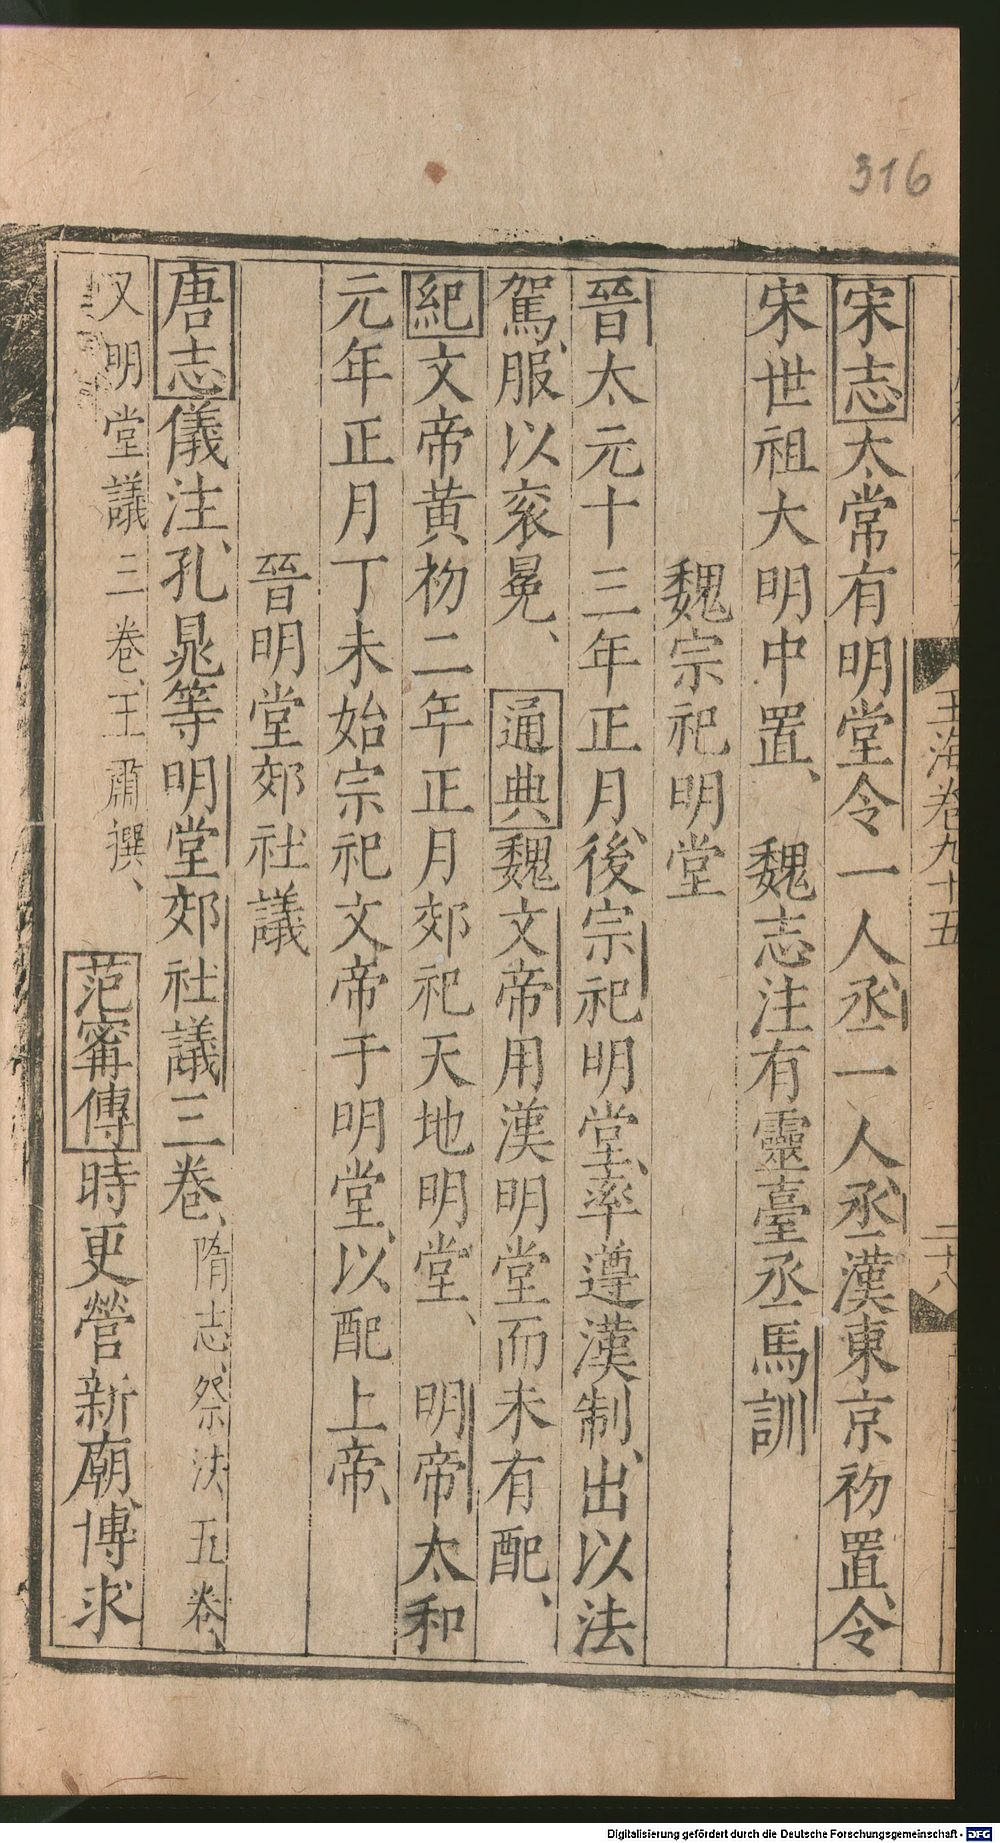 316
宋志太常有明堂令一人丞一人丞漢東京初置令
宋世祖大明中置、魏志注有靈臺丞馬訓
魏宗祀明堂
晉太元十三年正月後宗祀明堂率遵漢制出以法
駕服以衮冕、通典魏文帝用漢明堂而未有配、
紀文帝黃初二年正月郊祀天地明堂、明帝太和
元年正月丁未始宗祀文帝于明堂以配上帝、
晉明堂郊社議
唐志儀注孔晁等明堂郊社議三卷、隋志、祭法五卷、
又明堂議三卷、王肅撰、范甯傳時更營新廟博求
玉海卷九十五
二十八
Digitalisierung gefördert durch die Deutsche Forschungsgemeinschaft - DFG